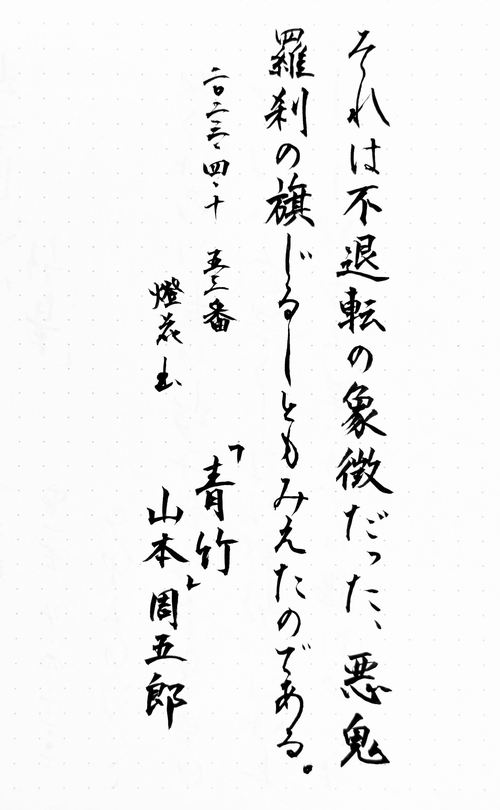 それは不退転の象徴だった、悪鬼
羅刹の旗じるしともみえたのである。
二〇二三・四・十
五三番
燈花
「青竹」
山本周五郎